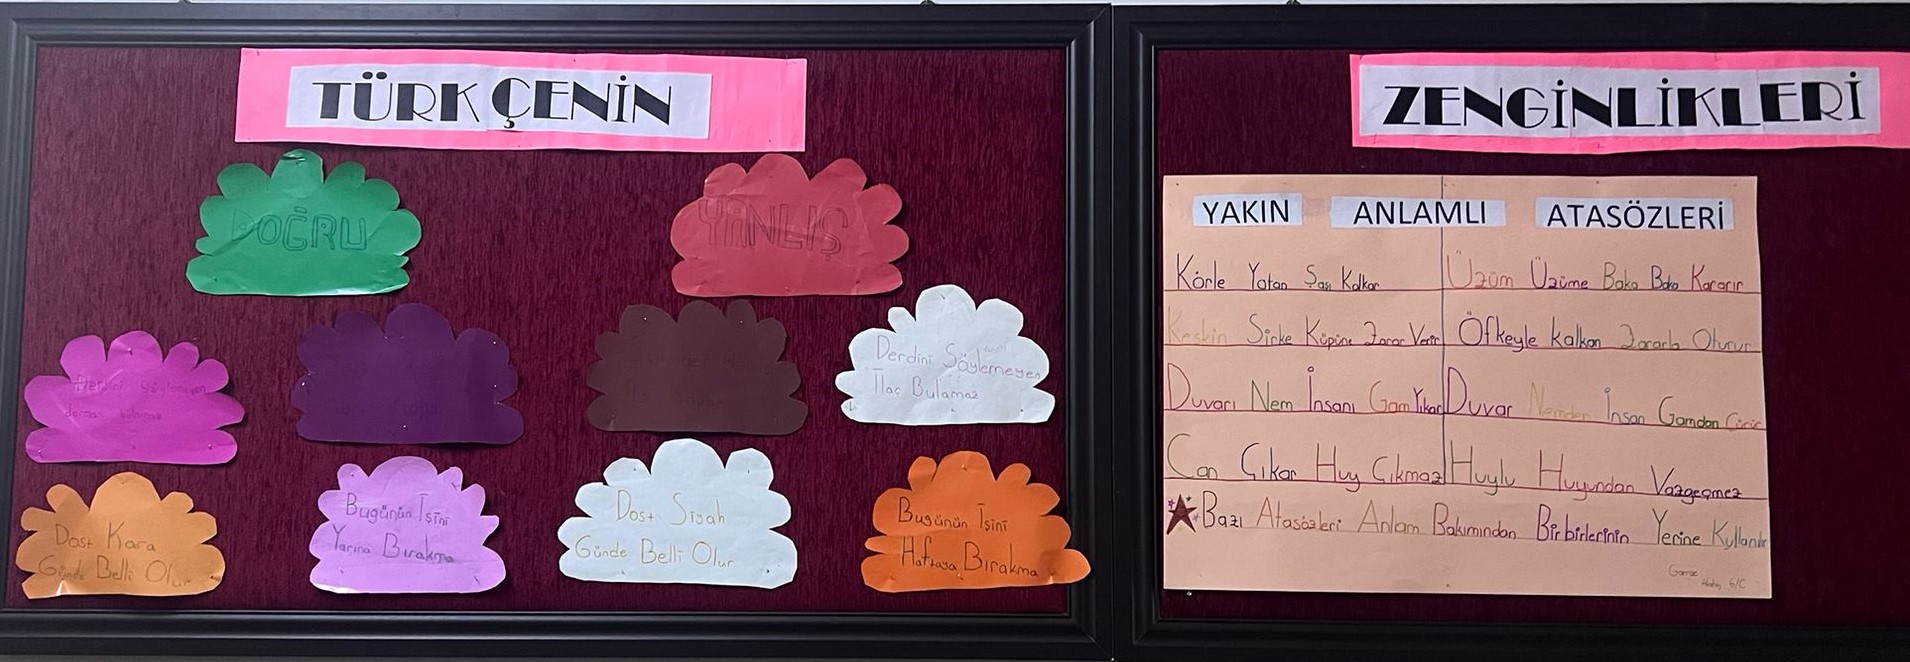 TÜRKÇENİN
ZENGİNLİKLERİ
DOĞRU
YANLIŞ
Derdini söylemeyen
derman bulamaz
Derdini Söylemeyen
İlaç Bulamaz
Dost Kara
Günde Belli Olur
Bugünün İşini
Yarına Bırakma
Dost Siyah
Günde Belli Olur
Bugünün İşini
Haftaya Bırakma
YAKIN ANLAMLI ATASÖZLERİ
Körle Yatan Şaşı Kalkar
Üzüm Üzüme Baka Baka Kararır
Keskin Sirke Küpüne Zarar Verir
Öfkeyle Kalkan Zararla Oturur
Duvarı Nem İnsanı Gam Yıkar
Duvar Nemden İnsan Gamdan Çürür
Can Çıkar Huy Çıkmaz
Huylu Huyundan Vazgeçmez
Bazı Atasözleri Anlam Bakımından Birbirlerinin Yerine Kullanılır
6/C